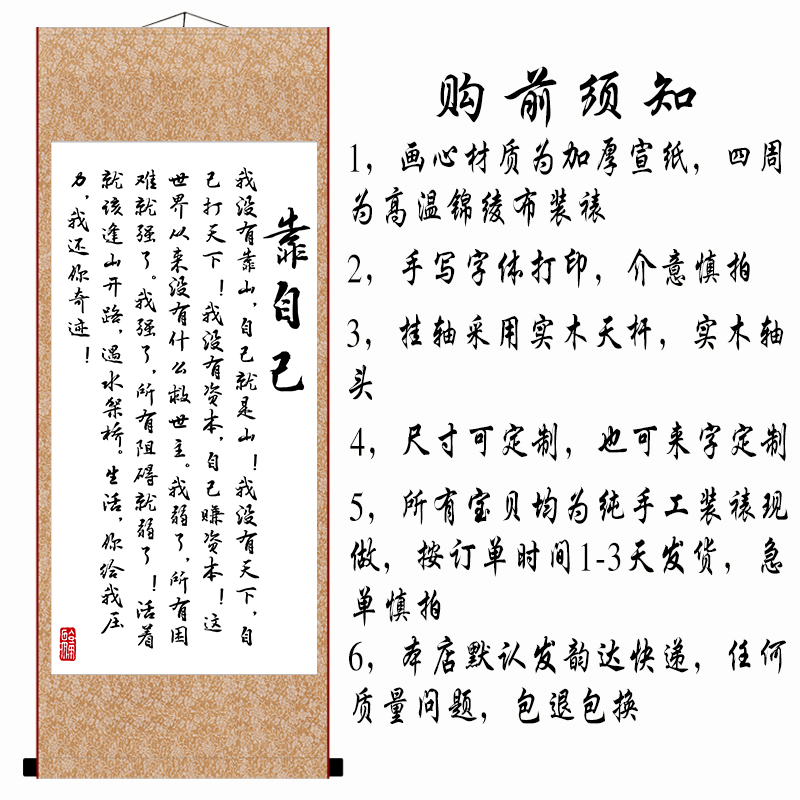 靠自己
我没有靠山，自己就是山！我没有天下，自
己打天下！我没有资本，自己赚资本！这
世界从来没有什么救世主。我弱了，所有困
难就强了。我强了，所有阻碍就弱了！活着
就该逢山开路，遇水架桥。生活，你给我压
力，我还你奇迹！
购前须知
1，画心材质为加厚宣纸，四周
为高温锦绫布装裱
2，手写字体打印，介意慎拍
3，挂轴采用实木天杆，实木轴
头
4，尺寸可定制，也可来字定制
5，所有宝贝均为纯手工装裱现
做，按订单时间1-3天发货，急
单慎拍
6，本店默认发韵达快递，任何
质量问题，包退包换